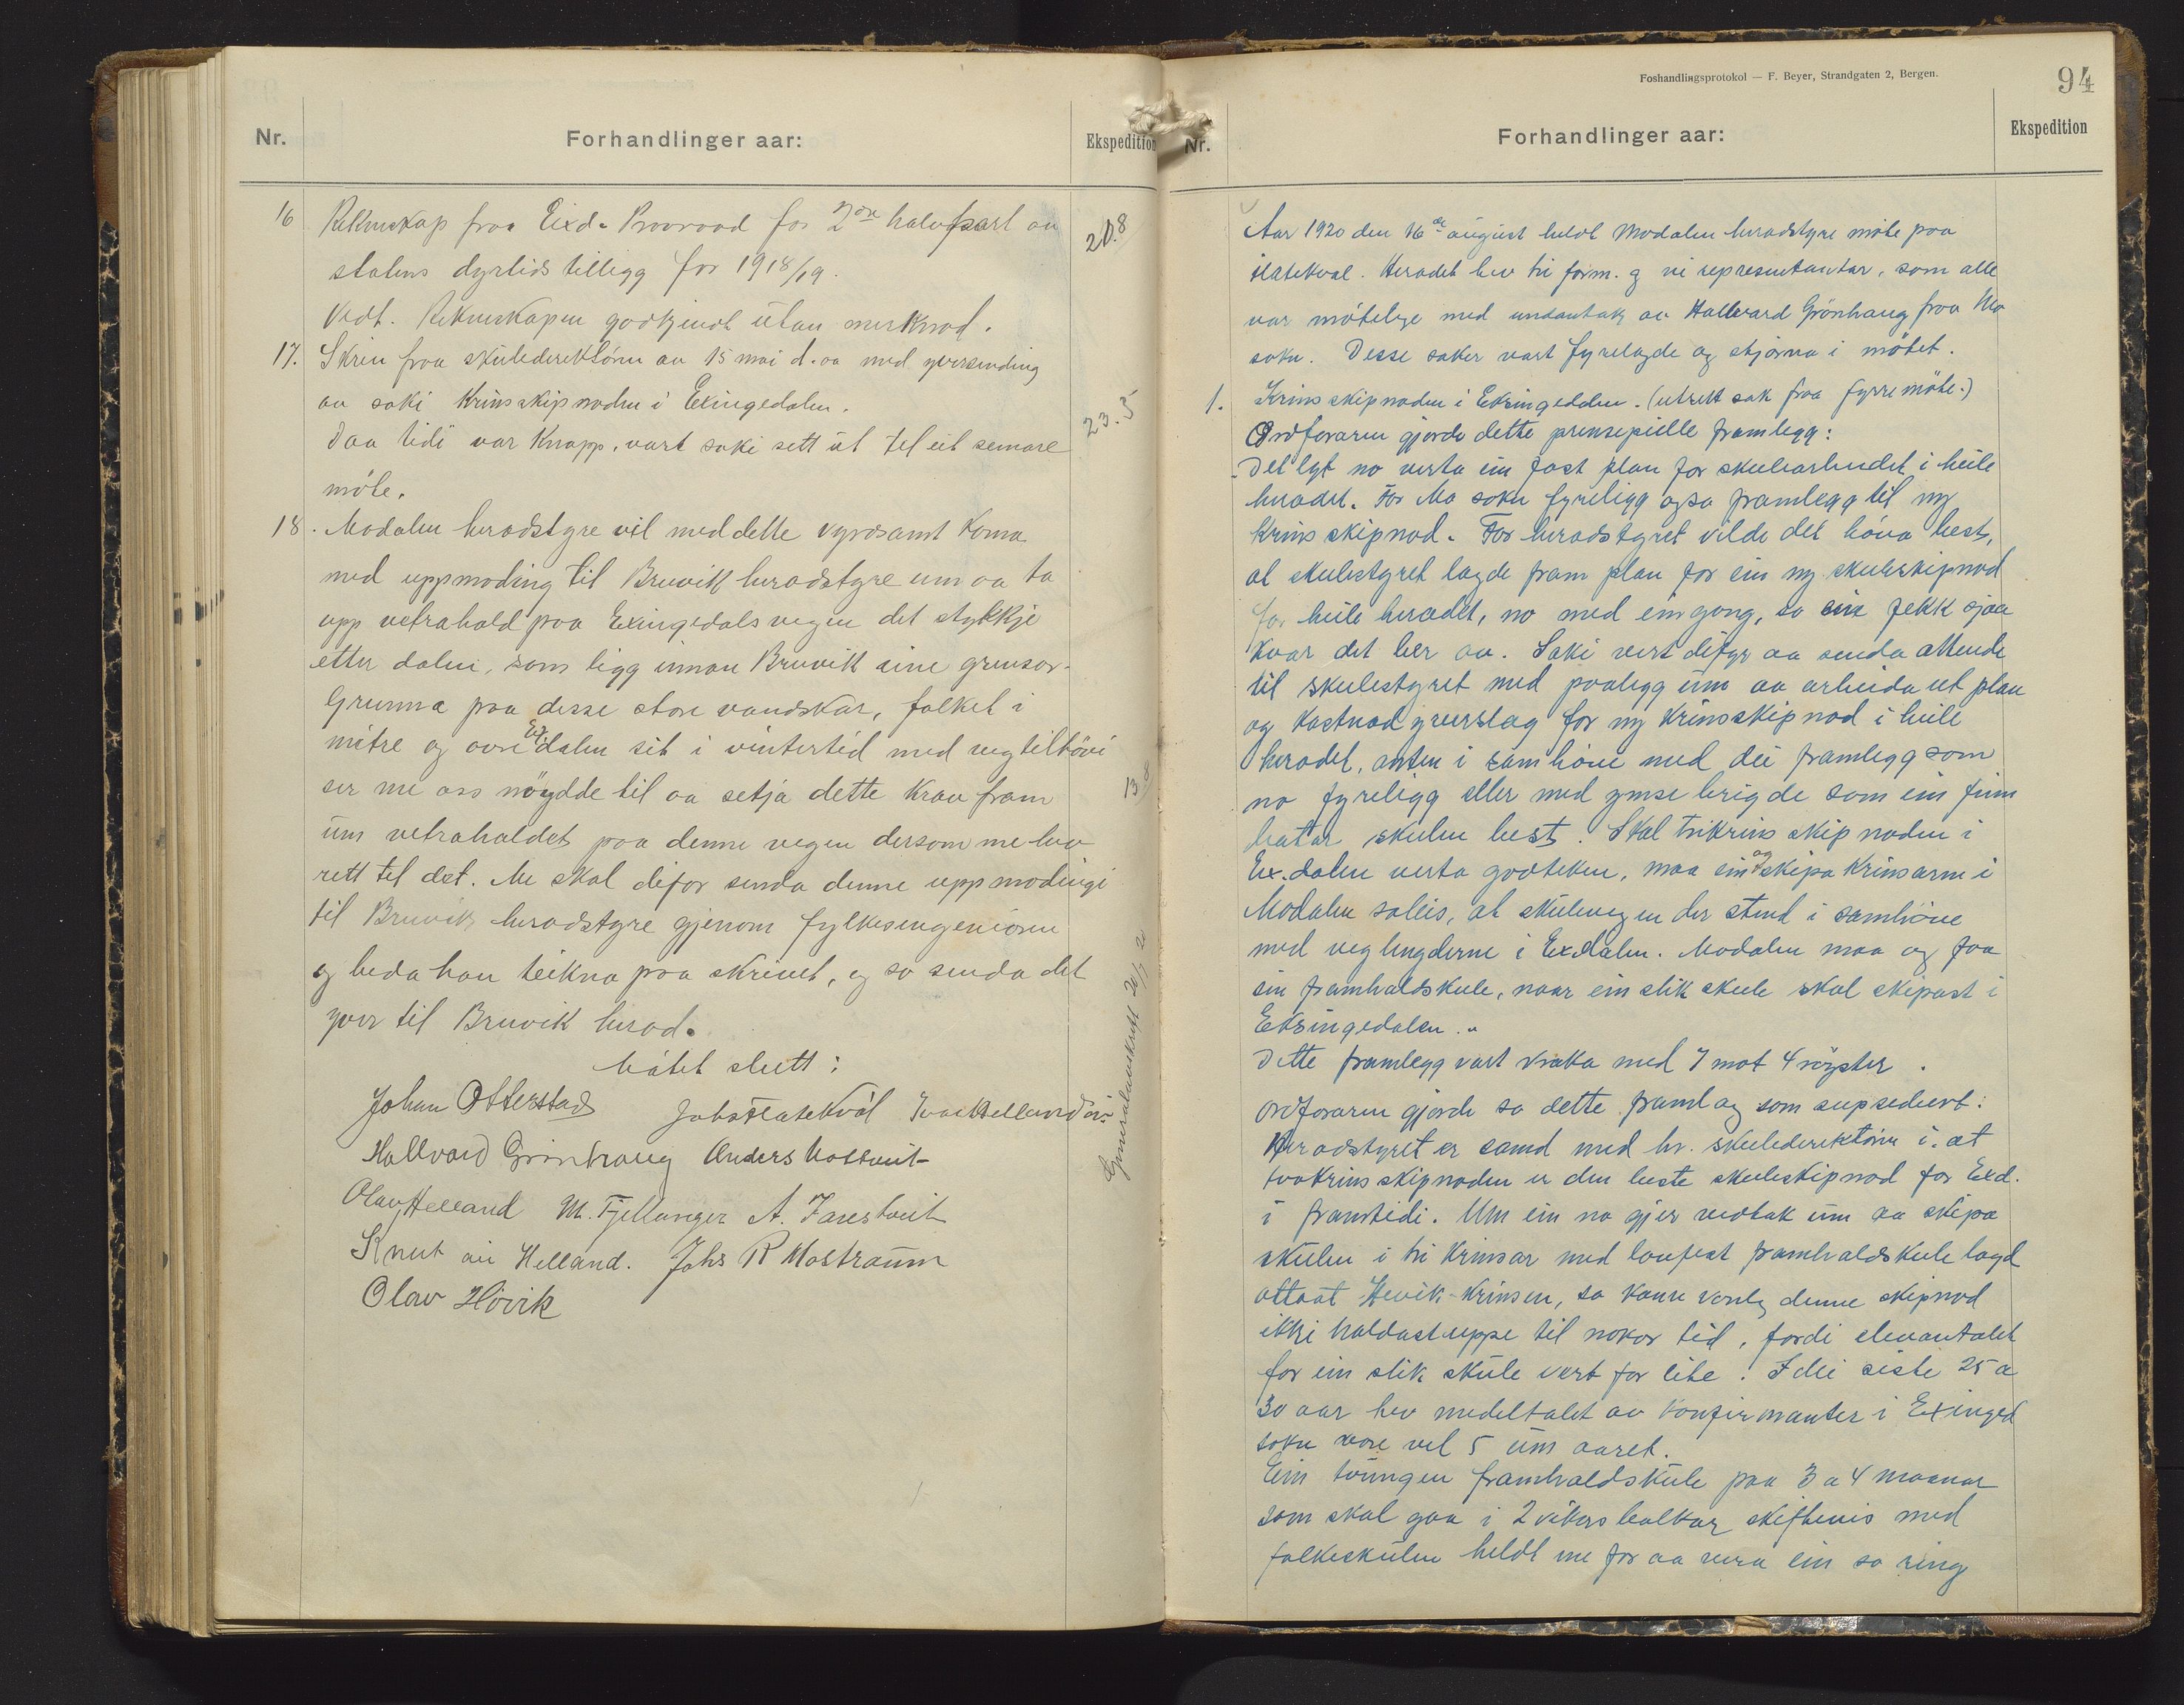 Nr.
Forhandlinger aar:
Ekspedition
16 Rekneskap fraa Eixd. Provraad for 2dre halvpart av
statens dyrtids tillegg for 1918/19.
Vedt. Rekneskapen godkjendt utan merknad.
21.8
17. Skriv fraa skuledirektören av 15 mai d. aa med yversending
av saki Krinsskipnaden i Exingedalen.
Daa tidi var knapp, vart saki sett ut til eit semare
möte.
23.5
18. Modalen heradstyre vil med dette vyrdsamt koma
med uppmoding til Bruvik heradstyre um aa ta
upp vetrahald paa Exingedalsvegen det stykkje
etter dalen, som ligg innan Bruvik sine grensor.
Grunna paa desse store vandskar, folket i
mitre og övre Ex.dalen sit i vintertid med vegtilhövi
ser me oss nöydde til aa setja dette krav fram
um vetrahaldet paa denne vegen dersom me hev
rett til det. Me skal difor senda denne uppmodingi
til Bruvik heradstyre gjenom fylkesingeniören
og beda han teikna paa skrivet, og so senda det
yver til Bruvik herad.
Mötet slutt:
Johan Otterstad Johs Flatekvål Ivar Helland
Hallvard Grönhaug Anders
Olav Helland M. Fjellanger A. Farestveit
Knut Helland. Johs R Mostraum
Olav Hövik
Forhandlingsprotokol — F. Beyer, Strandgaten 2, Bergen.
94
Nr.
Forhandlinger aar:
Ekspedition
Aar 1920 den 16de august heldt Modalen heradstyre möte paa
Flatekval. Heradet hev tri form. og ni representantar, som alle
var mötelege med undantak av Hallvard Grönhaug fraa Mo
sokn. Desse saker vart fyrelagde og avgjorda i mötet.
1. Krinsskipnaden i Eksingedalen. (utsett sak fraa fyrre möte.)
Ordföraren gjorde dette prinsepielle framlegg:
"Det lyt no verta ein fast plan for skulearbeidet i heile
heradet. For Mo sokn fyreligg ogso framlegg til ny
krinsskipnad. For heradstyret vilde det höva best,
at skulestyret lagde fram plan for ein ny skuleskipnad
for heile heradet, no med eingong, so ein fekk sjaa
kvar det ber av. Saki vert difyr aa senda attende
til skulestyret med paalegg um aa arbeida ut plan
og kostnadyverslag for ny krinsskipnad i heile
heradet, anten i samhöve med dei framlegg som
no fyreligg eller med ymse brigde som ein finn
batar skulen best. Skal trikrinsskipnaden i
Ex.dalen verta godteken, maa ein og skipa krinsarne i
Modalen soleis, at skulevegen der stend i samhöve
med veglengderne i Exdalen. Modalen maa og faa
ein framhaldskule, naar ein slik skule skal skipast i
Eksingedalen."
Dette framlegg vart vraka med 7 mot 4 röyster.
Ordföraren gjorde so dette framlag som supsediert:
Heradstyret er samd med hr. skuledirektören i at
tvokrinsskipnaden er den beste skuleskipnad for Exd.
i framtidi. Um ein no gjer vedtak um aa skipa
skulen i tri krinsar med lovfest framhaldskule lagd
attaat Hövik-krinsen, so kann venteleg denne skipnad
ikkje haldast uppe til nokor tid, fordi elevantalet
for ein slik skule vert for lite. I dei siste 25 a
30 aar hev medeltalet av konfirmanter i Exinged
sokn vore vel 5 um aaret.
Ein tvungen framhaldskule paa 3 a 4 maanar
som skal gaa i 2 vikers bolkar skiftevis med
folkeskulen heldt me for aa vera ein so ring